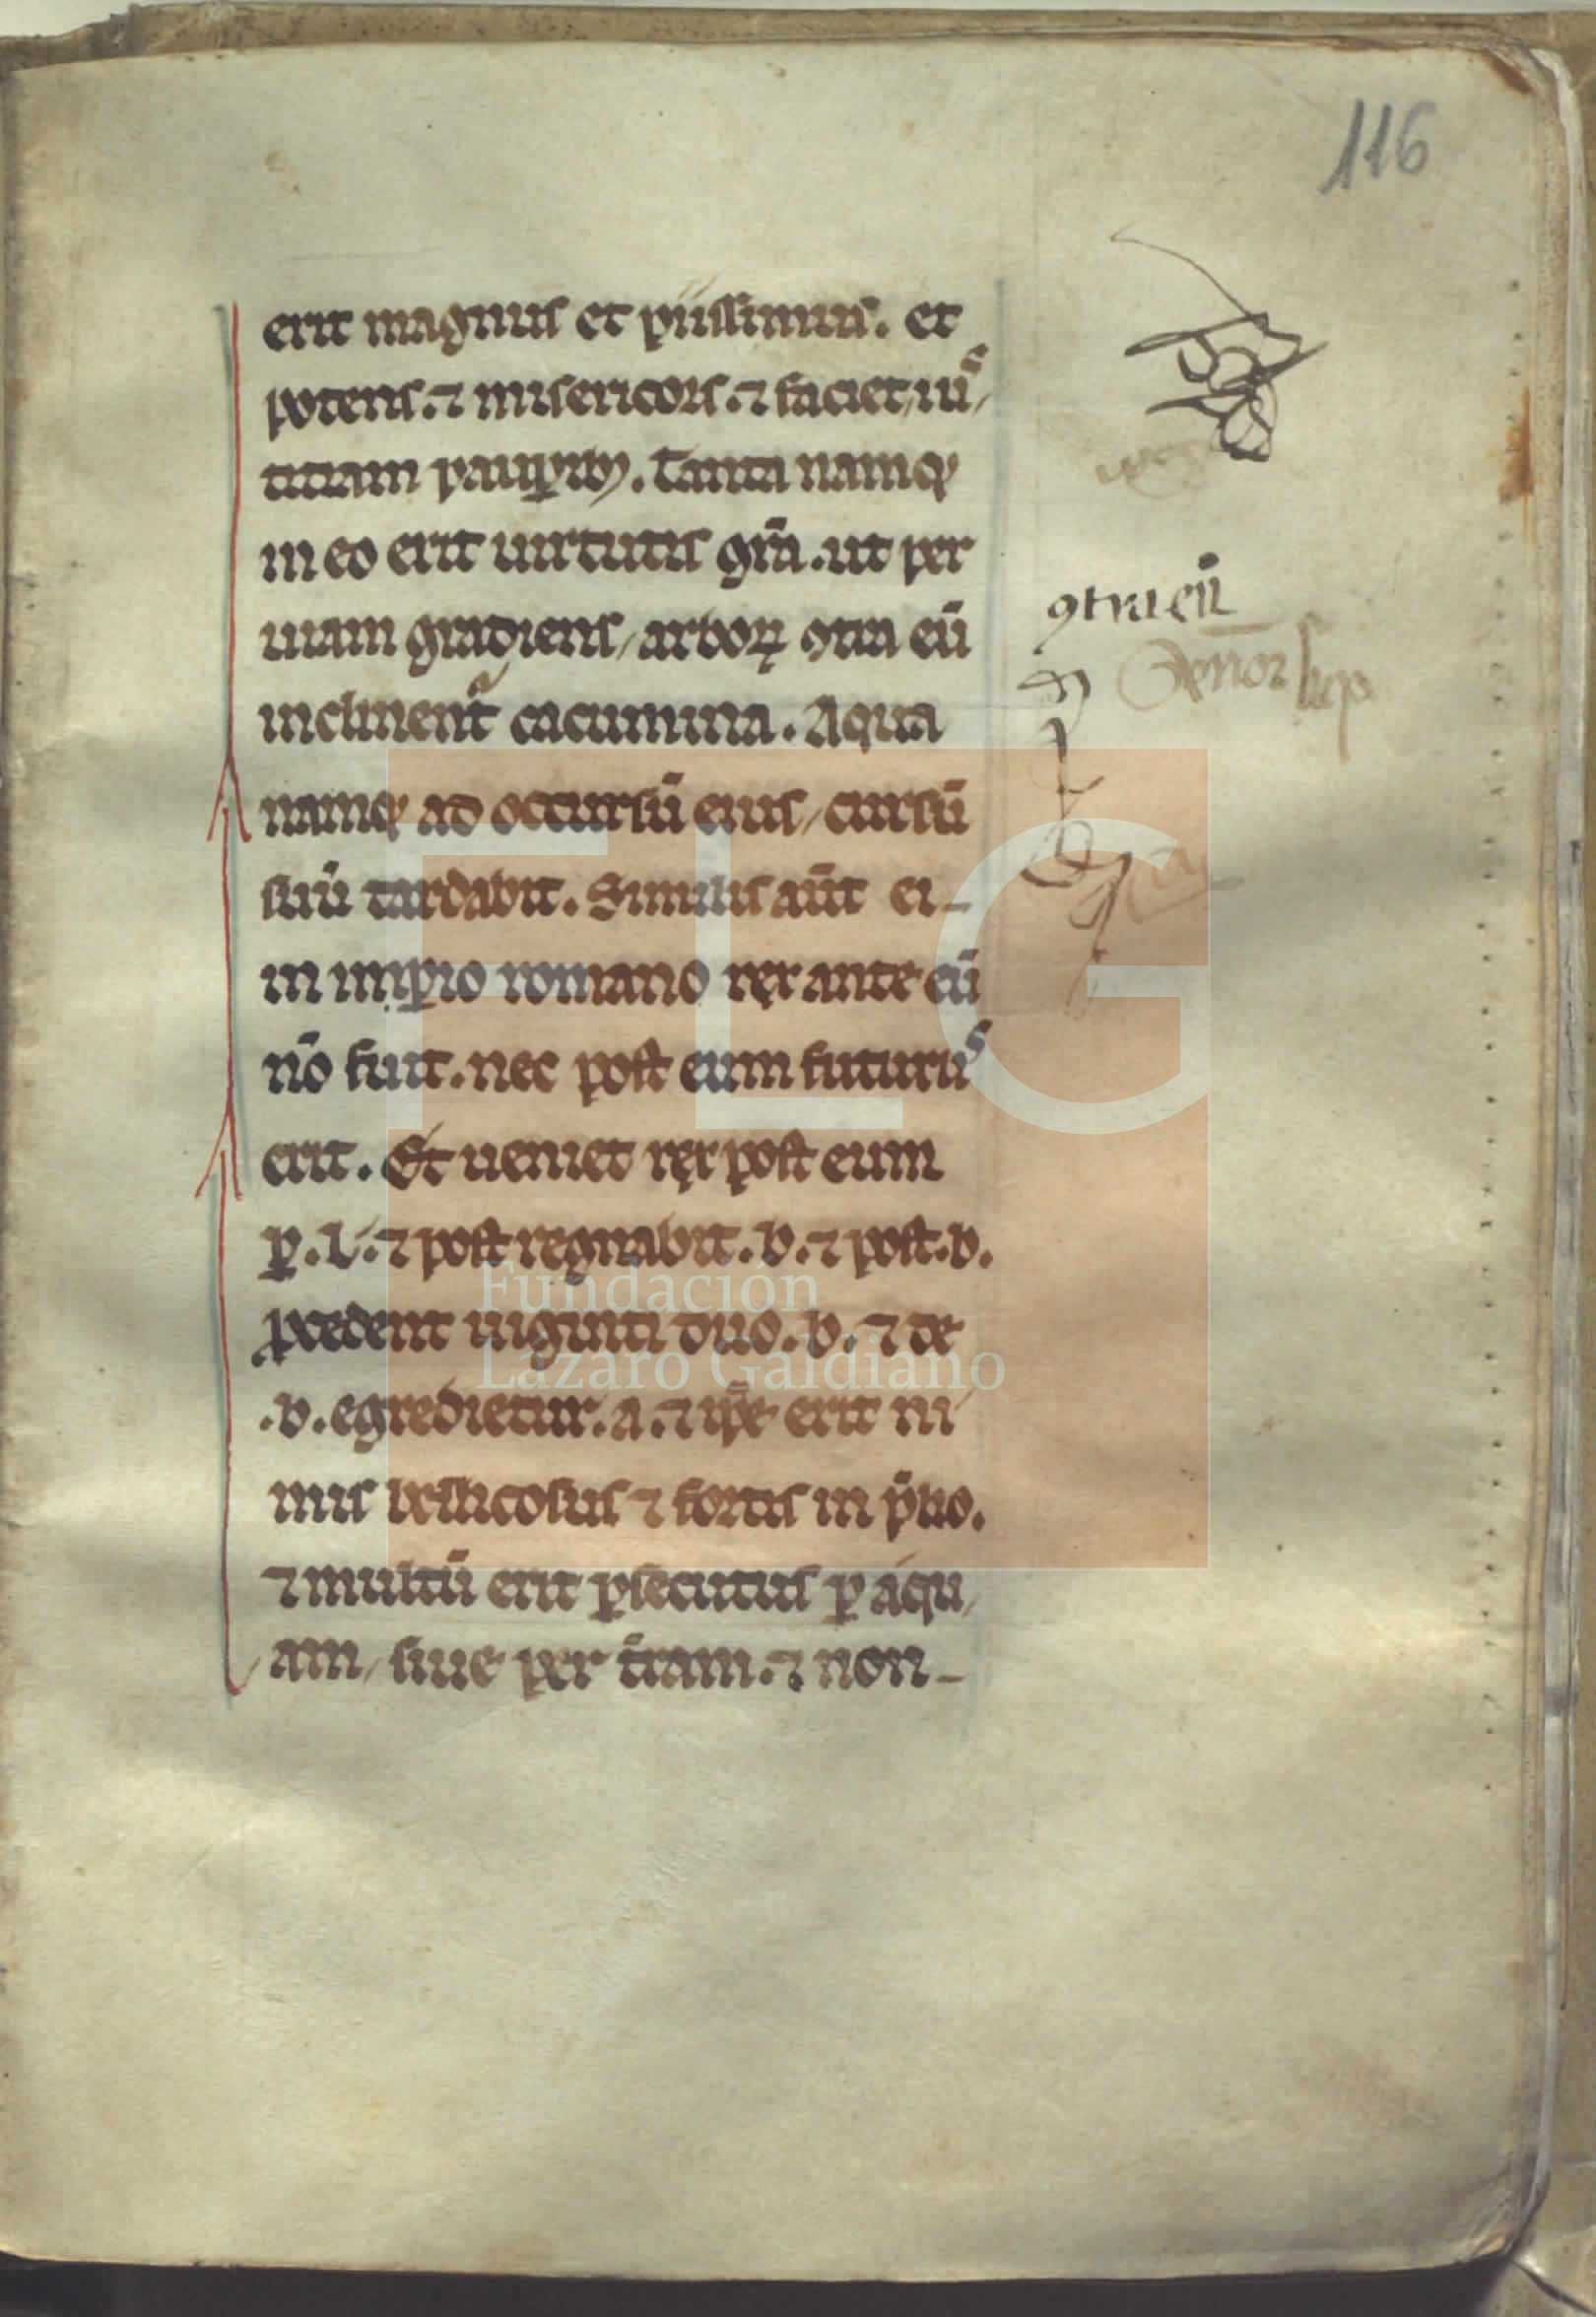 116
erit magnus et piissimus. et
potens. ⁊ misericors. ⁊ faciet iuˢ
titiam paup̲ib᷒. Tanta namq᷒
in eo erit uirtutis gr̄a. ut per
uiam gradiens, arboꝝ ꝯtra eū
inclinent᷑ cacumina. Aqua
namq᷒ ad occursū eius, cursū
suū tardabit. Similis aūt ei
in imꝑio romano rex ante eū
nō fuit. nec post eum futurus
erit. Et ueniet rex post eum
ꝑ. l. ⁊ post regnabit. b. ⁊ post. b.
ꝓcedent uiginti duo. b. ⁊ de
.b. egredietur. a. ⁊ ip̄e erit ni
mis bellicosus ⁊ fortis in p̄lio.
⁊ multū erit ꝑsecutus ꝑ aqu
am, siue per t̄ram. ⁊ non
ꝯtra eū
FLG
Fundación
Lázaro Galdiano